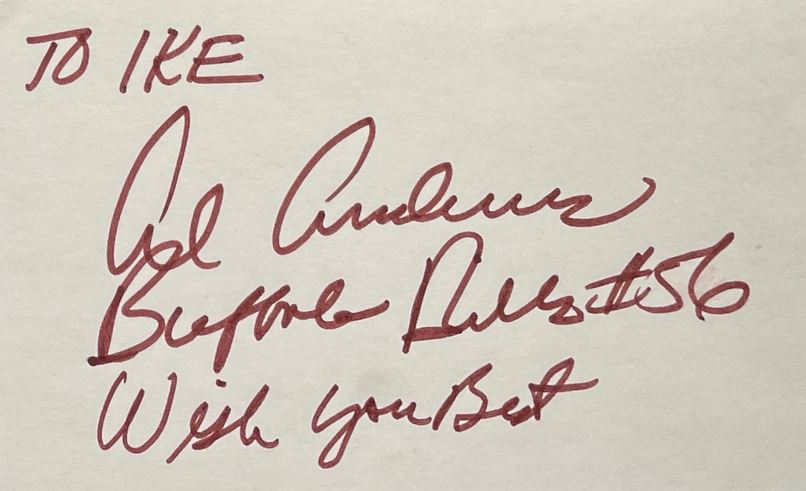 TO IKE
Al Andrews
Buffalo Bills #56
Wish you Best